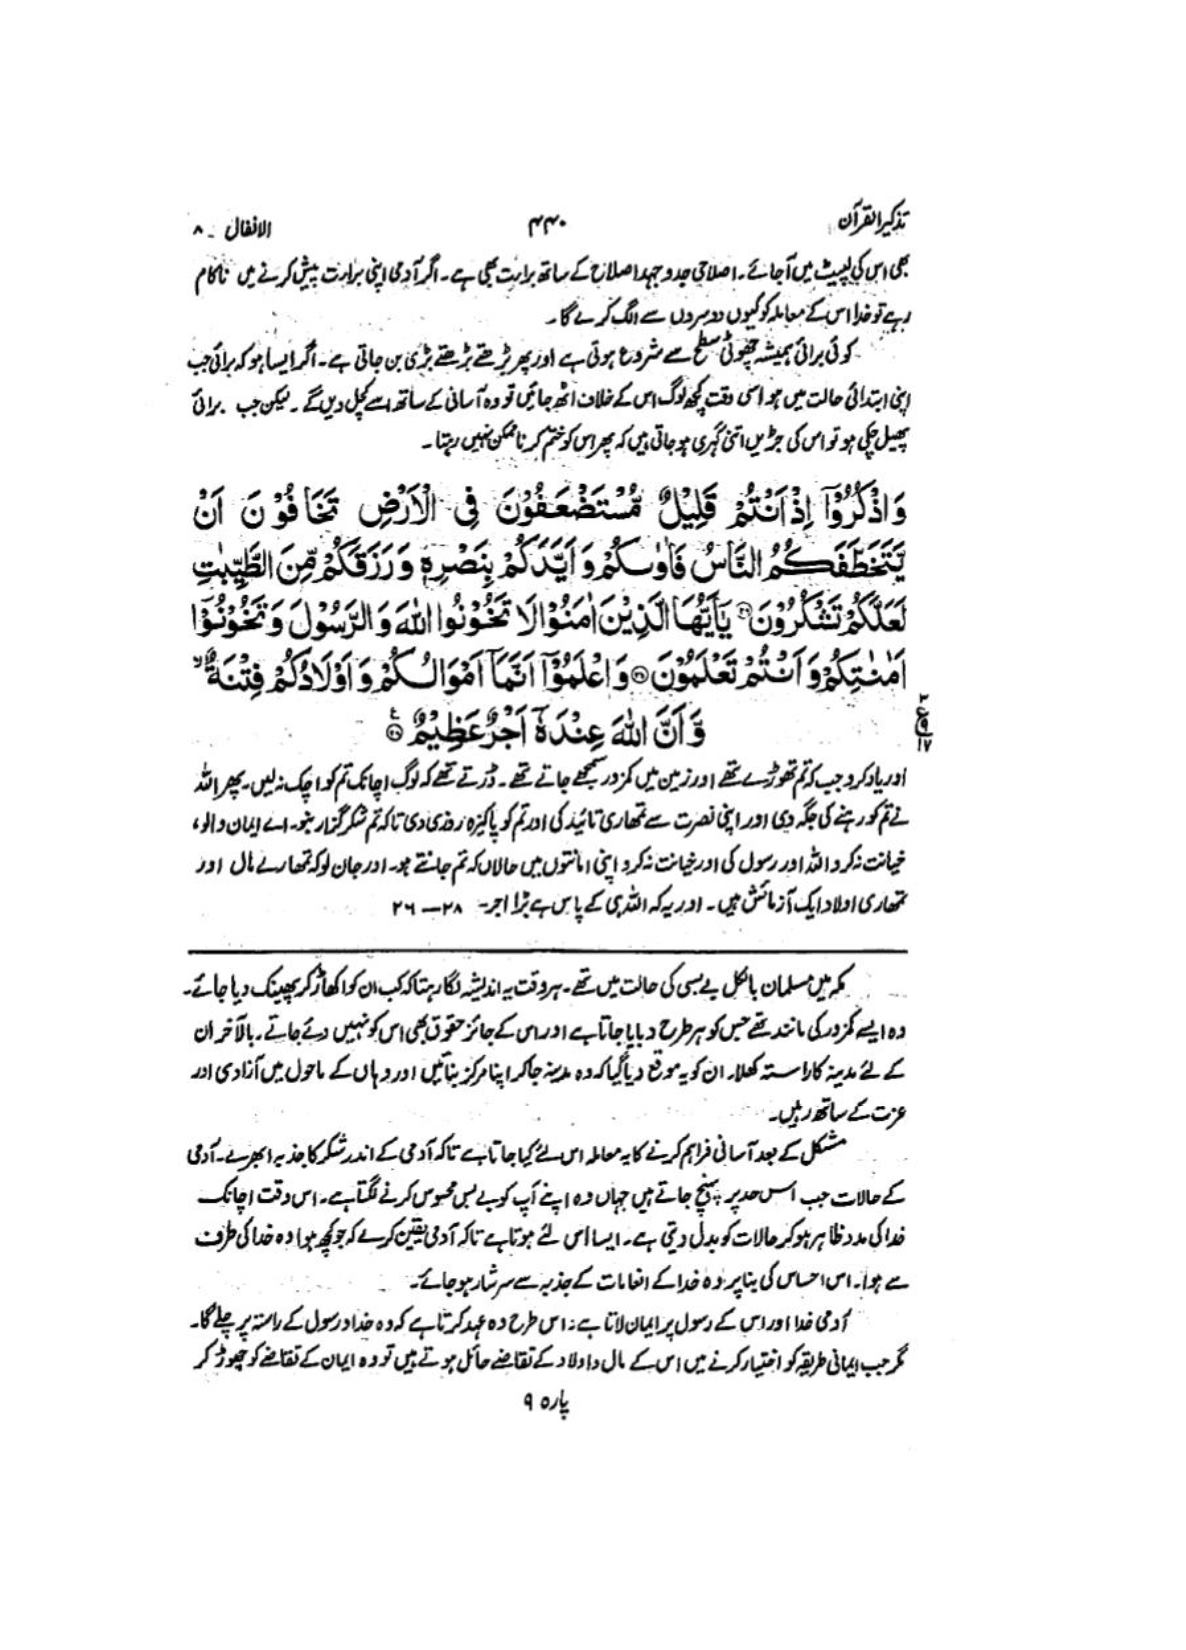 تذکیر القرآن ۴۴۰ الانفال ۔ ۸
بھی اس کی لپیٹ میں آجائے۔ اصلاحی جدوجہد اصلاح کے ساتھ براءت بھی ہے۔ اگر آدمی اپنی براءت پیش کرنے میں ناکام
رہے تو خدا اس کے معاملہ کو کیوں دوسروں سے الگ کرے گا۔
کوئی برائی ہمیشہ چھوٹی سطح سے شروع ہوتی ہے اور پھر بڑھتے بڑھتے بڑی بن جاتی ہے۔ اگر ایسا ہو کہ برائی جب
اپنی ابتدائی حالت میں ہو اسی وقت کچھ لوگ اس کے خلاف اٹھ جائیں تو وہ آسانی کے ساتھ اسے کچل دیں گے۔ لیکن جب برائی
پھیل چکی ہو تو اس کی جڑیں اتنی گہری ہو جاتی ہیں کہ پھر اس کو ختم کرنا ممکن نہیں رہتا۔
وَاذْكُرُوْٓا اِذْ اَنْتُمْ قَلِيْلٌ مُّسْتَضْعَفُوْنَ فِى الْاَرْضِ تَخَافُوْنَ اَنْ
يَّتَخَطَّفَكُمُ النَّاسُ فَاٰوٰىكُمْ وَاَيَّدَكُمْ بِنَصْرِهٖ وَرَزَقَكُمْ مِّنَ الطَّيِّبٰتِ
لَعَلَّكُمْ تَشْكُرُوْنَ ۝۲۶ يٰٓاَيُّهَا الَّذِيْنَ اٰمَنُوْا لَا تَخُوْنُوا اللّٰهَ وَالرَّسُوْلَ وَتَخُوْنُوْٓا
اَمٰنٰتِكُمْ وَاَنْتُمْ تَعْلَمُوْنَ ۝۲۷ وَاعْلَمُوْٓا اَنَّمَآ اَمْوَالُكُمْ وَاَوْلَادُكُمْ فِتْنَةٌ ۙ
وَّاَنَّ اللّٰهَ عِنْدَهٗٓ اَجْرٌ عَظِيْمٌ ۝۲۸ ع
۲
ع
۹
۱۷
اور یاد کرو جب کہ تم تھوڑے تھے اور زمین میں کمزور سمجھے جاتے تھے۔ ڈرتے تھے کہ لوگ اچانک تم کو اچک نہ لیں۔ پھر اللہ
نے تم کو رہنے کی جگہ دی اور اپنی نصرت سے تمھاری تائید کی اور تم کو پاکیزہ روزی دی تاکہ تم شکر گزار بنو۔ اے ایمان والو،
خیانت نہ کرو اللہ اور رسول کی اور خیانت نہ کرو اپنی امانتوں میں حالاں کہ تم جانتے ہو۔ اور جان لو کہ تمھارے مال اور
تمھاری اولاد ایک آزمائش ہیں۔ اور یہ کہ اللہ ہی کے پاس ہے بڑا اجر۔ ۲۸ — ۲۶
مکہ میں مسلمان بالکل بے بسی کی حالت میں تھے۔ ہر وقت یہ اندیشہ لگا رہتا کہ کب ان کو اکھاڑ کر پھینک دیا جائے۔
وہ ایسے کمزور کی مانند تھے جس کو ہر طرح دبایا جاتا ہے اور اس کے جائز حقوق بھی اس کو نہیں دئے جاتے۔ بالآخر ان
کے لئے مدینہ کا راستہ کھلا۔ ان کو یہ موقع دیا گیا کہ وہ مدینہ جا کر اپنا مرکز بنائیں اور وہاں کے ماحول میں آزادی اور
عزت کے ساتھ رہیں۔
مشکل کے بعد آسانی فراہم کرنے کا یہ معاملہ اس لئے کیا جاتا ہے تاکہ آدمی کے اندر شکر کا جذبہ ابھرے۔ آدمی
کے حالات جب اس حد پر پہنچ جاتے ہیں جہاں وہ اپنے آپ کو بے بس محسوس کرنے لگتا ہے۔ اس وقت اچانک
خدا کی مدد ظاہر ہو کر حالات کو بدل دیتی ہے۔ ایسا اس لئے ہوتا ہے تاکہ آدمی یقین کرے کہ جو کچھ ہوا وہ خدا کی طرف
سے ہوا۔ اس احساس کی بنا پر وہ خدا کے انعامات کے جذبہ سے سرشار ہو جائے۔
آدمی خدا اور اس کے رسول پر ایمان لاتا ہے۔ اس طرح وہ عہد کرتا ہے کہ وہ خدا و رسول کے راستہ پر چلے گا۔
مگر جب ایمانی طریقہ کو اختیار کرنے میں اس کے مال و اولاد کے تقاضے حائل ہوتے ہیں تو وہ ایمان کے تقاضے کو چھوڑ کر
پارہ ۹